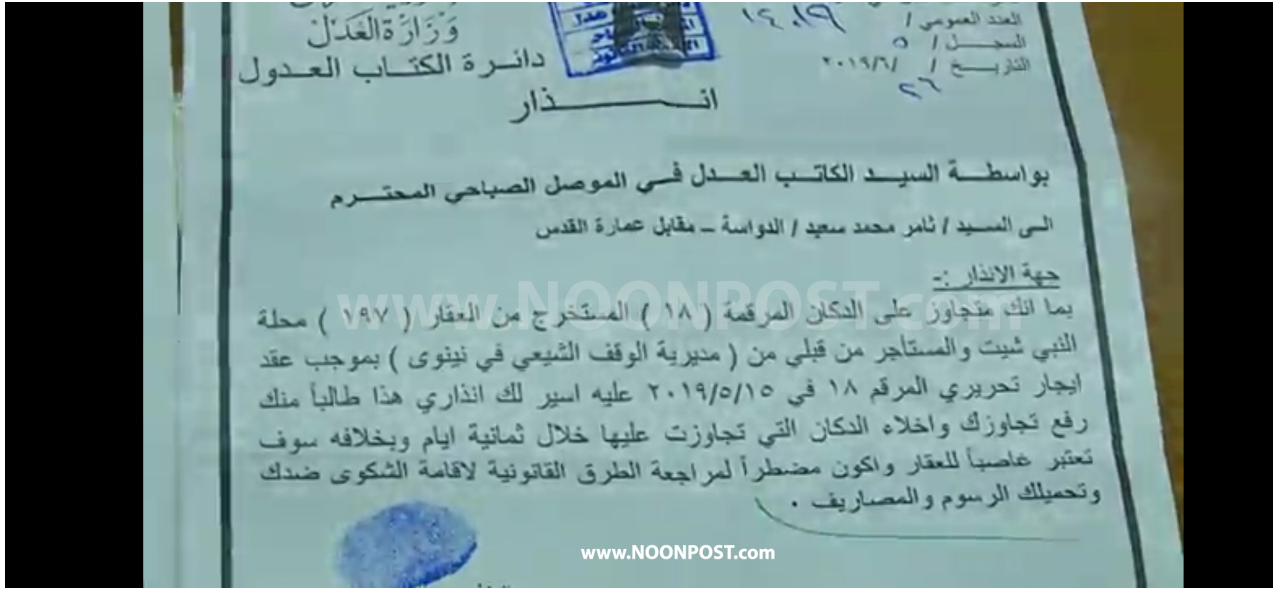 وزارة العدل
دائرة الكتاب العدول
العدد العمومي / ١٤٠١٩
السجل / ٥
التاريخ / ٢٦ / ٢٠١٩/٦
انـــــــذار
بواسطـة السيـد الكاتـب العـدل فـي الموصل الصباحي المحتـرم
الـى السيـد / ثامر محمد سعيد / الدواسة – مقابل عمارة القدس
جهة الانذار :-
بما انك متجاوز على الدكان المرقمة ( ١٨ ) المستخرج من العقار ( ١٩٧ ) محلة
النبي شيت والمستأجر من قبلي من ( مديرية الوقف الشيعي في نينوى ) بموجب عقد
ايجار تحريري المرقم ١٨ في ٢٠١٩/٥/١٥ عليه اسير لك انذاري هذا طالباً منك
رفع تجاوزك واخلاء الدكان التي تجاوزت عليها خلال ثمانية ايام وبخلافه سوف
تعتبر غاصباً للعقار واكون مضطراً لمراجعة الطرق القانونية لاقامة الشكوى ضدك
وتحميلك الرسوم والمصاريف .
www.NOONPOST.com
www.NOONPOST.com